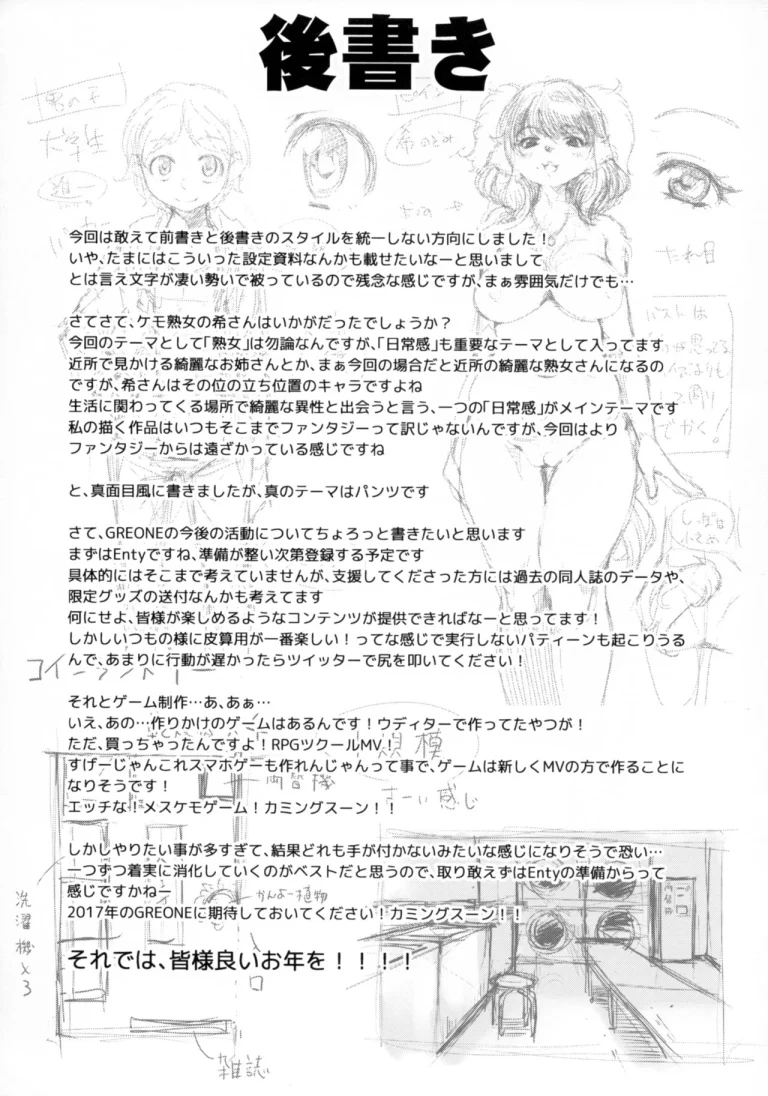 後書き
男の子
大学生
今回は敢えて前書きと後書きのスタイルを統一しない方向にしました！
いや、たまにはこういった設定資料なんかも載せたいなーと思いまして
とは言え文字が凄い勢いで被っているので残念な感じですが、まぁ雰囲気だけでも…
たれ目
バストは
さてさて、ケモ熟女の希さんはいかがだったでしょうか？
今回のテーマとして「熟女」は勿論なんですが、「日常感」も重要なテーマとして入ってます
近所で見かける綺麗なお姉さんとか、まぁ今回の場合だと近所の綺麗な熟女さんになるの
ですが、希さんはその位の立ち位置のキャラですよね
生活に関わってくる場所で綺麗な異性と出会うと言う、一つの「日常感」がメインテーマです
私の描く作品はいつもそこまでファンタジーって訳じゃないんですが、今回はより
ファンタジーからは遠ざかっている感じですね
でかく！
と、真面目風に書きましたが、真のテーマはパンツです
しっぽは
さて、GREONEの今後の活動についてちょろっと書きたいと思います
まずはEntyですね、準備が整い次第登録する予定です
具体的にはそこまで考えていませんが、支援してくださった方には過去の同人誌のデータや、
限定グッズの送付なんかも考えてます
何にせよ、皆様が楽しめるようなコンテンツが提供できればなーと思ってます！
しかしいつもの様に皮算用が一番楽しい！ってな感じで実行しないパティーンも起こりうる
んで、あまりに行動が遅かったらツイッターで尻を叩いてください！
コインランドリー
それとゲーム制作…あ、あぁ…
いえ、あの…作りかけのゲームはあるんです！ウディターで作ってたやつが！
ただ、買っちゃったんですよ！RPGツクールMV！
すげーじゃんこれスマホゲーも作れんじゃんって事で、ゲームは新しくMVの方で作ることに
なりそうです！
両替機
エッチな！メスケモゲーム！カミングスーン！！
しかしやりたい事が多すぎて、結果どれも手が付かないみたいな感じになりそうで恐い…
一つずつ着実に消化していくのがベストだと思うので、取り敢えずはEntyの準備からって
感じですかねー
かんよー植物
2017年のGREONEに期待しておいてください！カミングスーン！！
洗濯機×3
それでは、皆様良いお年を！！！！
雑誌